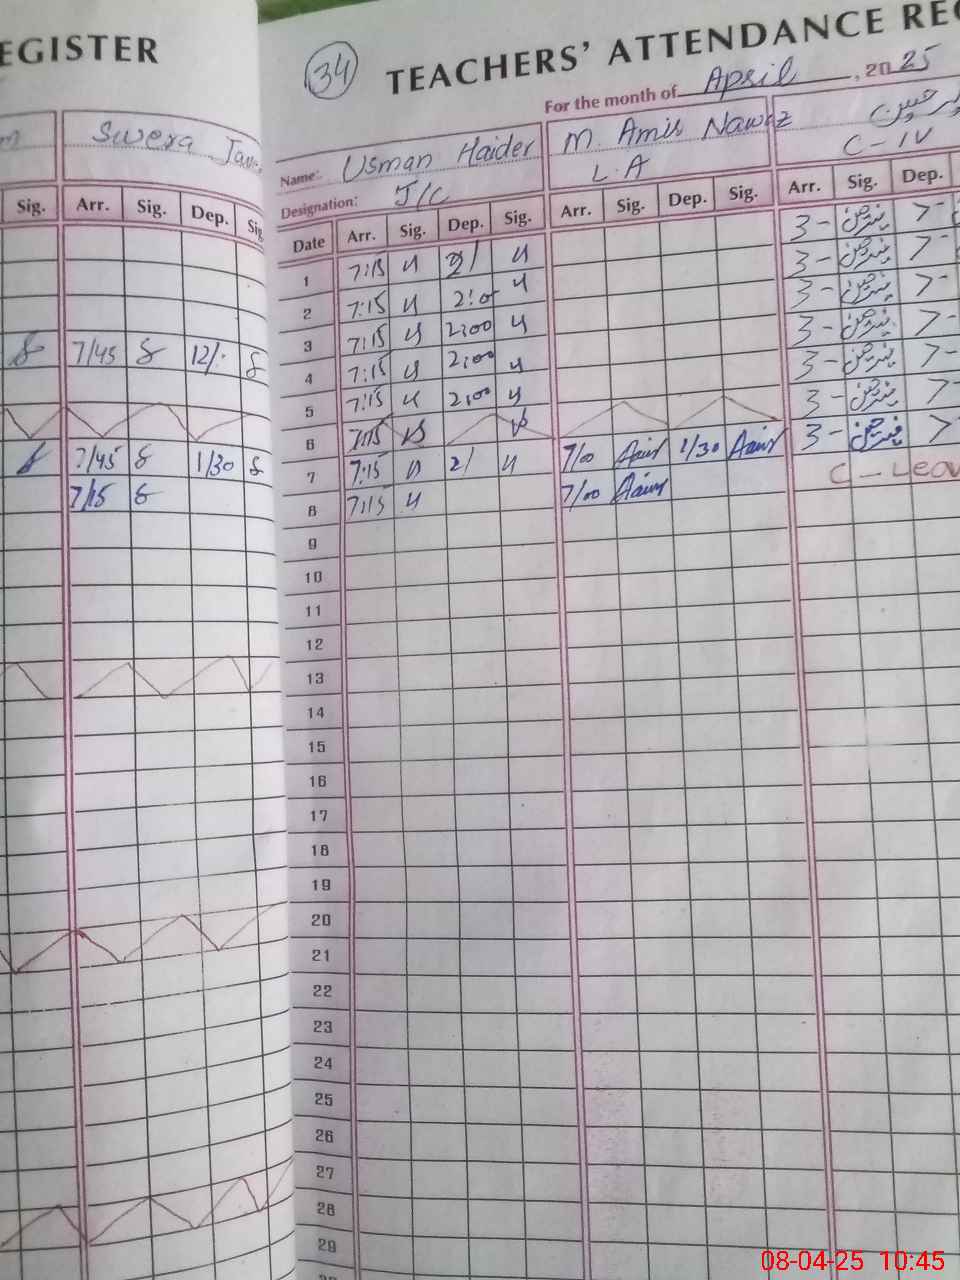 EGISTER
34
TEACHERS' ATTENDANCE REC
For the month of April, 2025
Swera
Name: Usman Haider M. Amir Nawaz
Designation: J/C L.A C-IV
Sig. Arr. Sig. Dep. Sig.
Date Arr. Sig. Dep. Sig. Arr. Sig. Dep. Sig. Arr. Sig. Dep.
1 7:15 2/ 3- 7-
2 7:15 2:00 3- 7-
3 7:15 2:00 3- 7-
7/45 12/:
4 7:15 2:00 3- 7-
5 7:15 2:00 3- 7-
6 7:15 3- 7-
7/45 1/30
7 7:15 2/ 7/00 Aamir 1/30 Aamir 3- 7-
7/15
8 7:15 7/00 Aamir C-Leav
9
10
11
12
13
14
15
16
17
18
19
20
21
22
23
24
25
26
27
28
29
08-04-25 10:45